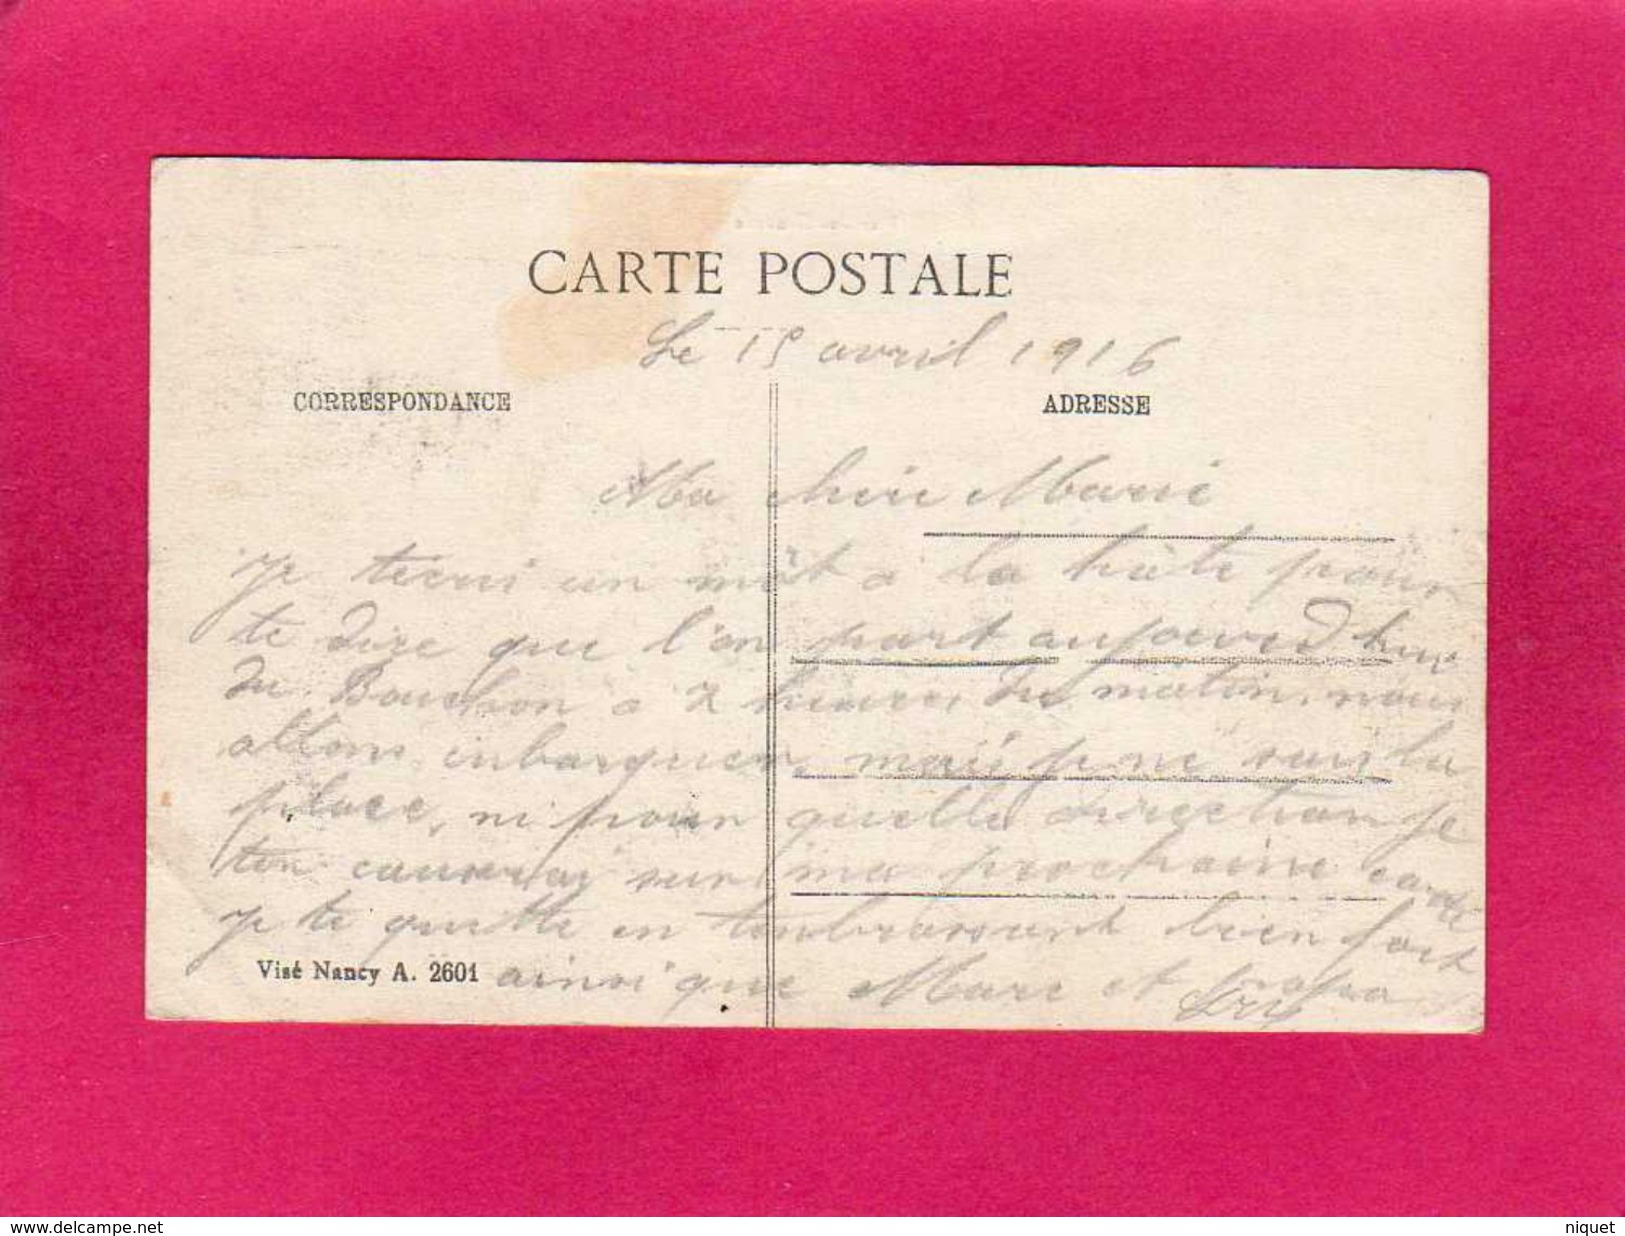 CARTE POSTALE
Le 15 avril 1916
CORRESPONDANCE
ADRESSE
Ma chère Marie
Je técris un môt a la hâte pour
te dire que l'on part aujourd hui
du Bouchon a 7 heures du matin. nous
allons enbarquer, mais je ne sais la
place, ni pour quelle direction je
ten causerai sur ma prochaine carte
Je te quitte en tembrassant bien fort
Visé Nancy A. 2601
ainsi que Marc et papa
www.delcampe.net
niquet